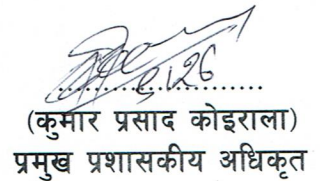 (कुमार प्रसाद कोइराला)
प्रमुख प्रशासकीय अधिकृत